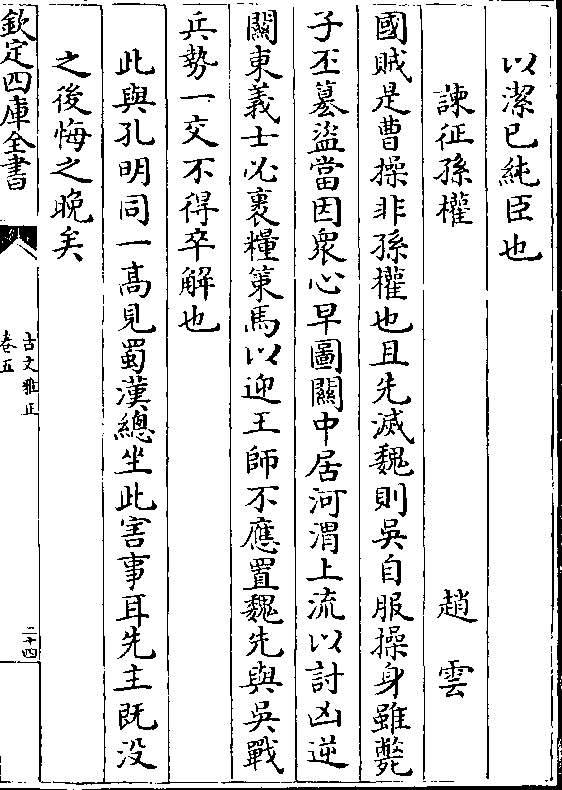 以潔已純臣也
諫征孫權
趙雲
國賊是曹操非孫權也且先滅魏則吳自服操身雖斃
子丕簒盜當因衆心早圖關中居河渭上流以討凶逆
關東義士必裹糧策馬以迎王師不應置魏先與吳戰
兵勢一交不得卒解也
此與孔明同一高見蜀漢總坐此害事耳先主既没
之後悔之晚矣
欽定四庫全書
古文雅正
卷五
二十四